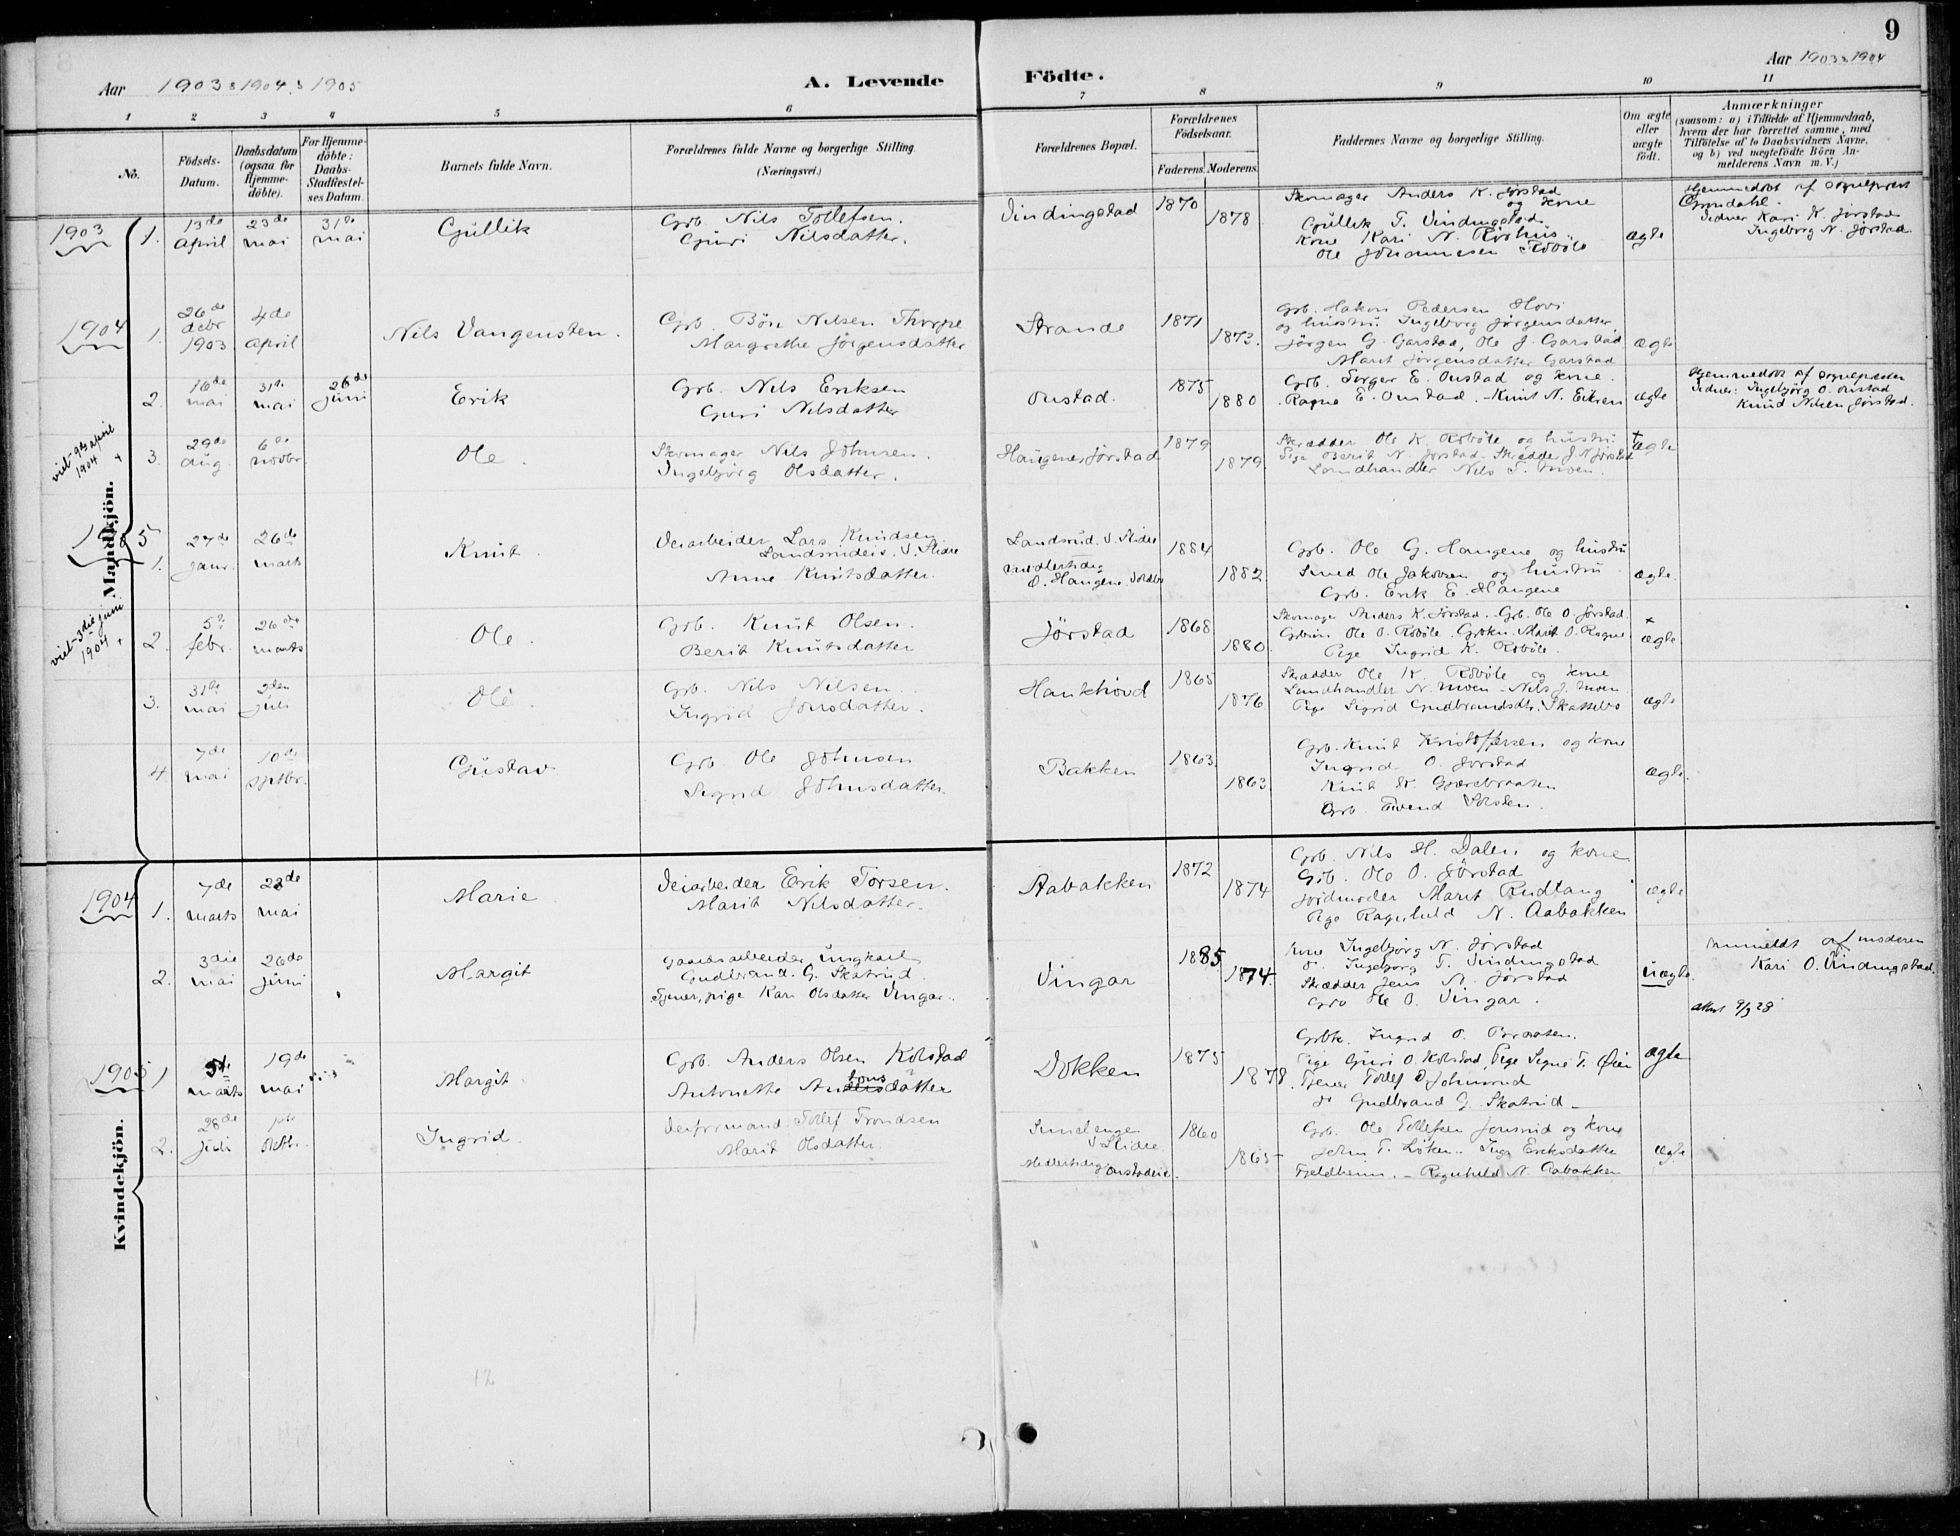 9
Aar 1903, 1904, 1905
A. Levende Födte.
Aar 1903, 1904
1 2 3 4 5 6 7 8 9 10 11
No.
Födsels-Datum.
Daabsdatum (ogsaa for Hjemmedöbte).
For Hjemmedöbte: Daabs-Stadfæstelses Datum.
Barnets fulde Navn.
Forældrenes fulde Navne og borgerlige Stilling. (Næringsvei.)
Forældrenes Bopæl.
Forældrenes Födselsaar.
Faderens. Moderens.
Faddernes Navne og borgerlige Stilling.
Om ægte eller uægte födt.
Anmærkninger
(saasom: a) i Tilfælde af Hjemmedaab, hvem der har forrettet samme, med Tilföielse af to Daabsvidners Navne, og b) ved uægtefödte Börn Anmelderens Navn m. V.)
Mandkjön.
1903
1. 13de april 23de mai 31te mai Gullik
Grb. Nils Tollefsen.
Guri Nilsdatter.
Vindingstad 1870 1878
Skomager Anders K. Jørstad og kone
Gullik T. Vindingstad
Kone Kari N. Røshus
Ole Johannesen Robøle
ægte
Hjemmedøbt af sogneprest
Grøndahl.
Vidner Kari K. Jørstad
Ingeborg N. Jørstad.
1904
1. 26de debr 1903 4de april Nils Vangensten.
Grb. Bøn Nilsen Thrype
Margrethe Jörgensdatter
Strande 1871 1873.
Grb. Hakon Pedersen Hovi
og hustru Ingeborg Jørgensdatter
Jørgen G. Garstad, Ole J. Garstad
Marit Jørgensdatter Garstad
ægte
2. 16de mai 31te mai 26de juni Erik
Grb. Nils Eriksen
Guri Nilsdatter
Onstad. 1875 1880
Grb. Torger E. Onstad og kone.
Ragne E. Onstad. Knut N. Eikren
ægte
Hjemmedøbt af sognepresten
Vidner: Ingebjörg O. Onstad
Knud Nilsen Jørstad.
viet 9de april 1904 +
3. 29de aug. 6te novbr Ole.
Skomager Nils Johnsen.
Ingebjörg Olsdatter.
Haugene, Jørstad 1879 1879
Skrædder Ole K. Robøle og hustru
Pige Berit N. Jørstad. Skrædder J. N. Jørstad
Landhandler Nils T. Moen.
+ ægte
1905
1. 27de janr. 26de marts Knut.
Veiarbeider Lars Knudsen
Landsrudeie. S. Slidre
Anne Knutsdatter.
Landsrud. S. Slidre
midlertidig
O. Haugene 1884 1882
Grb. Ole G. Haugene og hustru
Smed Ole Jakobsen og hustru
Grb. Erik E. Haugene
ægte.
viet 3die juni 1904 +
2. 5te febr. 26de marts Ole.
Grb. Knut Olsen.
Berit Knutsdatter
Jørstad 1868 1880
Skomager Anders K. Jørstad. Grb. Ole O. Jørstad.
Ole O. Robøle. Marit O. Ragne
Pige Ingrid K. Robøle.
+ ægte
3. 31te mai 2den juli Ole.
Grb. Nils Nilsen.
Ingrid Jonsdatter.
Haukhovd 1865 1876
Skrædder Ole K. Robøle og kone
Landhandler N. Moen - Nils J. Moen
Pige Sigrid Gudbrandsdtr. Skattebo
ægte
4. 7de mai 10de septbr. Gustav
Grb Ole Johnsen
Sigrid Johnsdatter.
Bakken 1863. 1863.
Grb. Knut Kristoffersen og kone
Ingrid O. Jørstad
Knut K. Gjærebraaten
Grb. Eivend
ægte.
Kvindekjön.
1904
1. 7de marts 23de mai Marie
Veiarbeider Erik Torsen.
Marit Nilsdatter.
Aabakken 1872 1874
Grb. Nils H. Dalen og kone
Grb. Ole O. Jørstad
Jordmoder Marit Rudtang
Pige Ragnhild N. Aabakken
ægte
2. 3die mai 26de juni Margit
Gaardsarbeider, ungkarl
Gudbrand. G. Skatrud.
Tjener, pige Kari Olsdatter Vingar.
Vingar 1885 1874.
Kone Ingebjörg N. Jørstad
do. Ingeborg T. Vindingstad
Skrædder Jens N. Jørstad
Grb Ole O. Vingar.
uægte
Anmeldt af moderen
Kari O. Vindingstad.
attest 9/3 28
1905
1 5te marts 19de mai Margit.
Grb. Anders Olsen Kolstad
Antonette Antonsdatter
Dokken 1875 1878.
Grbk. Ingrid O. Braaten.
Pige Guri O. Kolstad, Pige Signe T. Øien
Tjener Tollef O. Johnsrud
do Gudbrand G. Skatrud
ægte
2. 28de juli 1ste oktbr. Ingrid.
Veiformand Tollef Trondsen
Marit Olsdatter.
S. Slidre
Midlertidig Onstadeie. 1860 1865
Grb. Ole Tollefsen Jonsrud og kone
John T. Löken. Inga Eriksdatter
Fjeldheim. - Ragnhild N. Aabakken
ægte
12